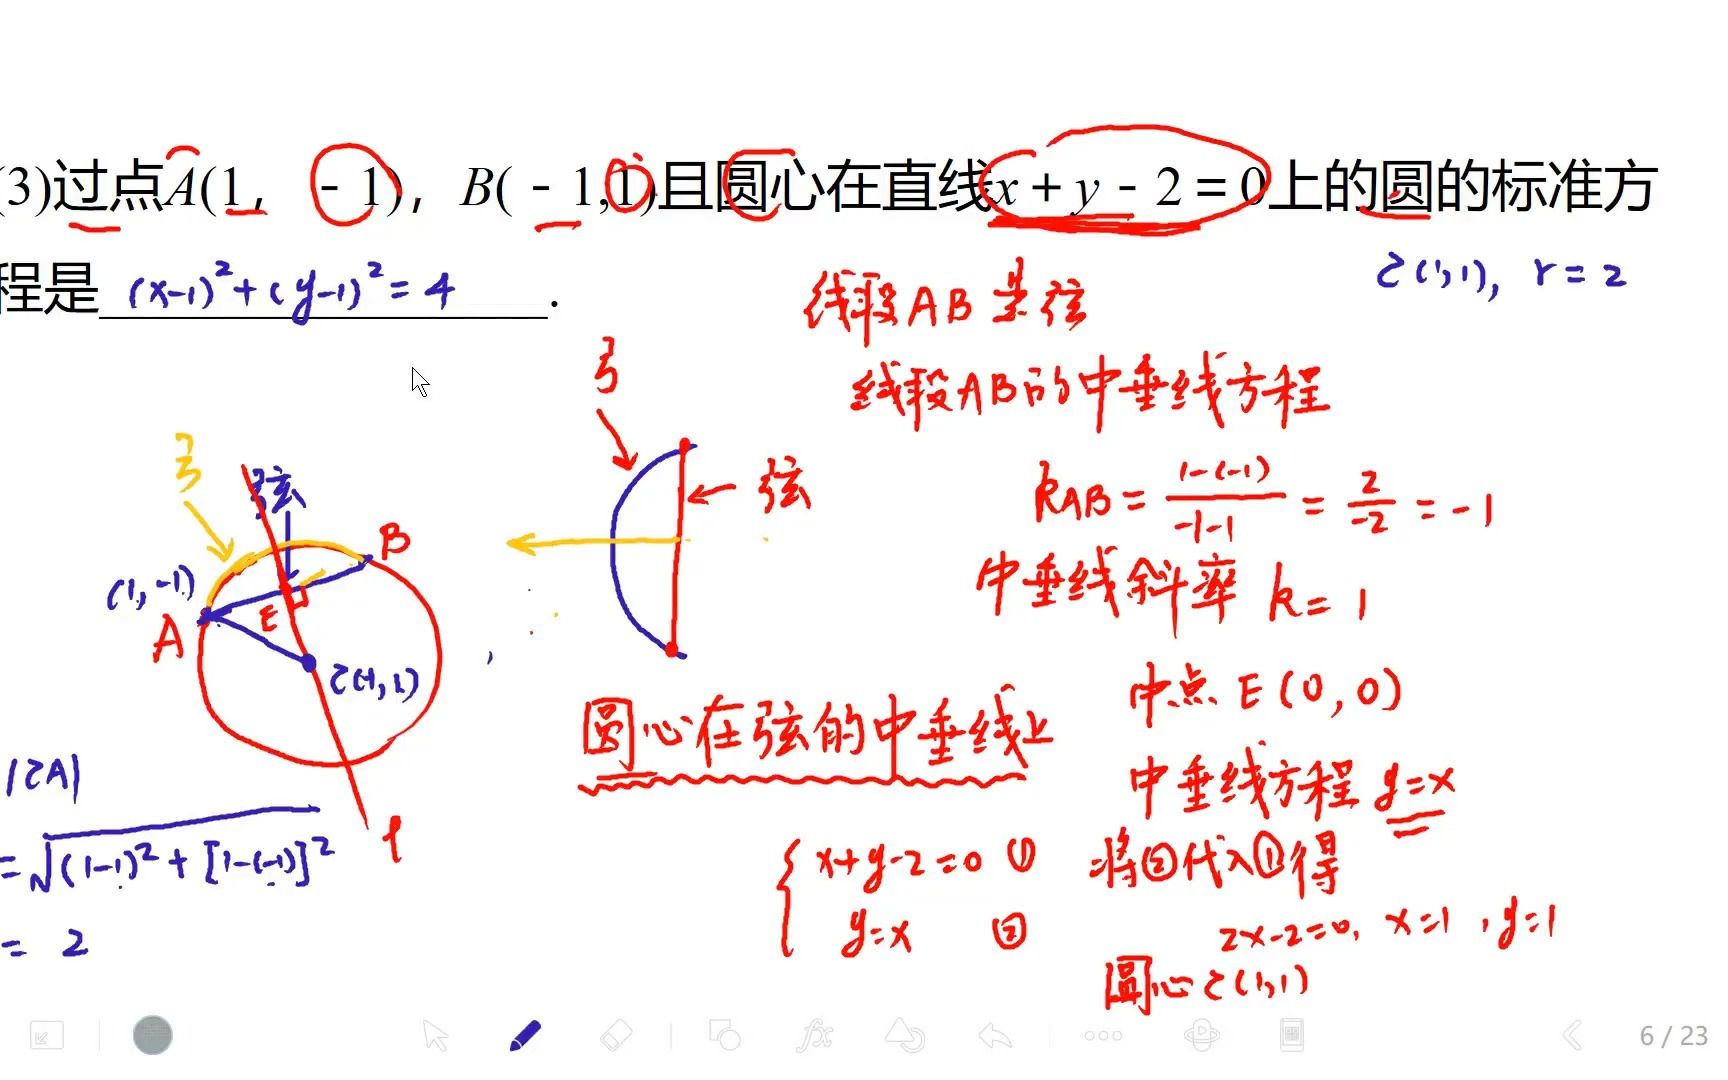 (3)过点A(1, -1), B(-1,1)且圆心在直线x+y-2=0上的圆的标准方
程是 (x-1)²+(y-1)²=4 .
C(1,1), r=2
线段AB是弦
线段AB的中垂线方程
k_AB = (1-(-1))/(-1-1) = 2/(-2) = -1
中垂线斜率 k=1
中点 E(0,0)
中垂线方程 y=x
弓
弦
弓
弦
(1,-1)
A
B
E
C(1,1)
l
圆心在弦的中垂线上
|CA|
=√((1-1)²+[1-(-1)]²)
= 2
{ x+y-2=0 ①
y=x ②
将②代入①得
2x-2=0, x=1, y=1
圆心C(1,1)
6 / 23